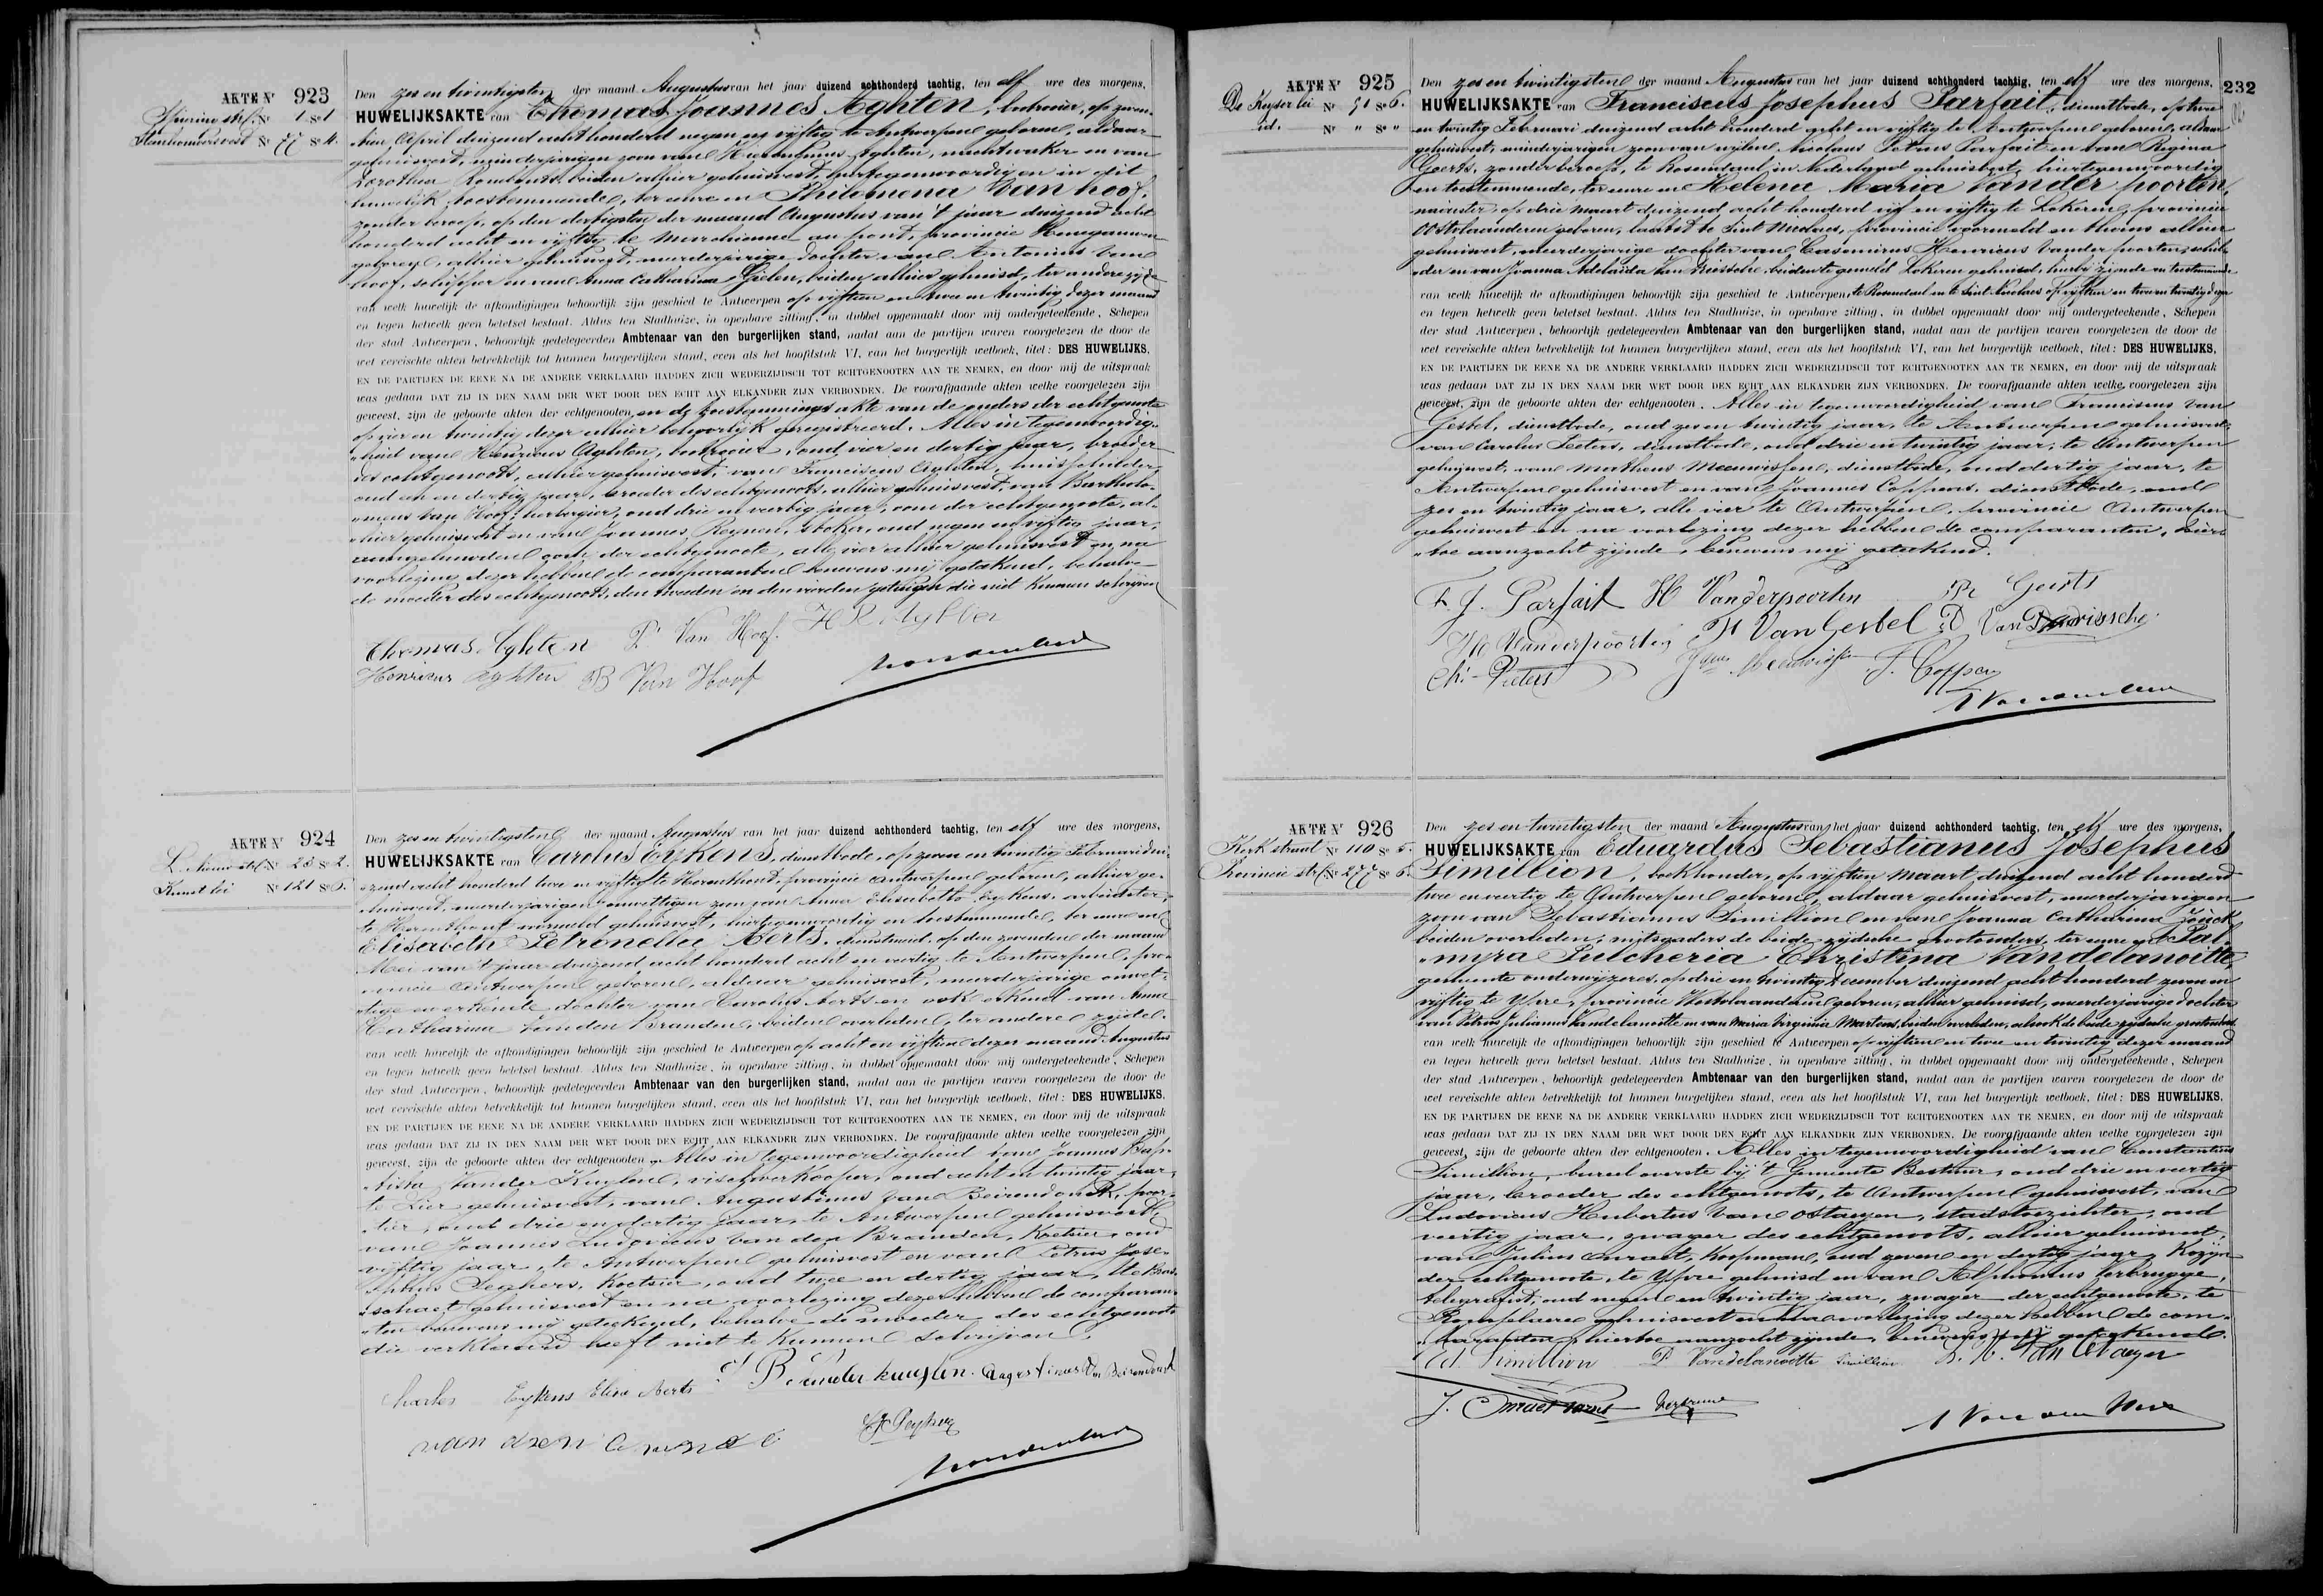 AKTE Nr 923
1 Sie 1
Steenhouwersvest Nr 77 Sie 4.
Den zes en twintigsten der maand Augustus van het jaar duizend achthonderd tachtig, ten elf ure des morgens,
HUWELIJKSAKTE van Thomas Joannes Aghten, op zeven-
tien April duizend acht honderd negen en vijftig te Antwerpen geboren, aldaar
gehuisvest, minderjarigen zoon van Hieronimus Aghten, nachtwaker en van
Dorothea Rombouts beiden alhier gehuisvest, hiertegenwoordig en in dit
huwelijk toestemmende, ter eenre en Philomena Van hoof,
zonder beroep, op den dertigsten der maand Augustus van 't jaar duizend acht
honderd acht en vijftig te Marchienne au pont, provincie Henegouwen
geboren, alhier gehuisvest, minderjarige dochter van Antonius Van
hoof, schipper en van Anna Catharina Gielen, beiden alhier gehuisd, ter andere zijde
van welk huwelijk de afkondigingen behoorlijk zijn geschied te Antwerpen op vijftien en twee en twintig dezer maand
en tegen hetwelk geen beletsel bestaat. Aldus ten Stadhuize, in openbare zitting, in dubbel opgemaakt door mij ondergeteekende, Schepen
der stad Antwerpen, behoorlijk gedelegeerden Ambtenaar van den burgerlijken stand, nadat aan de partijen waren voorgelezen de door de
wet vereischte akten betrekkelijk tot hunnen burgerlijken stand, even als het hoofdstuk VI, van het burgerlijk wetboek, titel: DES HUWELIJKS,
EN DE PARTIJEN DE EENE NA DE ANDERE VERKLAARD HADDEN ZICH WEDERZIJDSCH TOT ECHTGENOOTEN AAN TE NEMEN, en door mij de uitspraak
was gedaan DAT ZIJ IN DEN NAAM DER WET DOOR DEN ECHT AAN ELKANDER ZIJN VERBONDEN. De voorafgaande akten welke voorgelezen zijn
geweest, zijn de geboorte akten der echtgenooten en de toestemmings akte van de ouders der echtgenoote
op vier en twintig dezer alhier behoorlijk geregistreerd. Alles in tegenwoordig-
heid van Henricus Aghten, oud vier en dertig jaar, broeder
des echtgenoots, alhier gehuisvest, van Franciscus Aghten, huisschilder,
oud een en dertig jaar, broeder des echtgenoots, alhier gehuisvest, van Bartholo-
meus Van Hoof, herbergier, oud drie en veertig jaar, oom der echtgenoote, al-
hier gehuisvest en van Joannes Reynen, stoker, oud negen en vijftig jaar,
aangehuwden oom der echtgenoote, alle vier alhier gehuisvest en na
voorlezing dezer hebben de comparanten benevens mij geteekend, behalve
de moeder des echtgenoots, den tweeden en den vierden getuigen die niet kunnen schrijven
Thomas Aghten P. Van Hoof. H R Aghten
Henricus Aghten B Van Hoof
AKTE Nr 924
L. Nieuwstr Nr 23 Sie 2.
Kunst lei Nr 121 Sie 5.
Den zes en twintigsten der maand Augustus van het jaar duizend achthonderd tachtig, ten elf ure des morgens,
HUWELIJKSAKTE van Carolus Eykens, dienstbode, op zeven en twintig Februari dui-
zend acht honderd twee en vijftig te Herenthout, provincie Antwerpen geboren, alhier ge-
huisvest, meerderjarigen onwettigen zoon van Anna Elisabetha Eykens, arbeidster,
te Herenthout gehuisvest, hiertegenwoordig en toestemmende, ter eenre en
Elisabeth Petronella Aerts, dienstmeid, op den zevenden der maand
Mei van 't jaar duizend acht honderd acht en veertig te Antwerpen, pro-
vincie Antwerpen geboren, aldaar gehuisvest, meerderjarige onwet-
tige en erkende dochter van Carolus Aerts en ook erkend van Anna
Catharina Van den Branden, beiden overleden, ter andere zijde.
van welk huwelijk de afkondigingen behoorlijk zijn geschied te Antwerpen op acht en vijftien dezer maand Augustus
en tegen hetwelk geen beletsel bestaat. Aldus ten Stadhuize, in openbare zitting, in dubbel opgemaakt door mij ondergeteekende, Schepen
der stad Antwerpen, behoorlijk gedelegeerden Ambtenaar van den burgerlijken stand, nadat aan de partijen waren voorgelezen de door de
wet vereischte akten betrekkelijk tot hunnen burgerlijken stand, even als het hoofdstuk VI, van het burgerlijk wetboek, titel: DES HUWELIJKS,
EN DE PARTIJEN DE EENE NA DE ANDERE VERKLAARD HADDEN ZICH WEDERZIJDSCH TOT ECHTGENOOTEN AAN TE NEMEN, en door mij de uitspraak
was gedaan DAT ZIJ IN DEN NAAM DER WET DOOR DEN ECHT AAN ELKANDER ZIJN VERBONDEN. De voorafgaande akten welke voorgelezen zijn
geweest, zijn de geboorte akten der echtgenooten. Alles in tegenwoordigheid van Joannes Bap-
tista Vander Kuylen, vischverkooper, oud acht en twintig jaar,
te Lier gehuisvest, van Augustinus Van Beirendonck, por-
tier, oud drie en dertig jaar, te Antwerpen gehuisvest
van Joannes Ludovicus Van den Branden, oud
vijftig jaar, te Antwerpen gehuisvest en van Petrus Jose-
phus Seghers, Koetsier, oud twee en dertig jaar, te Bras-
schaet gehuisvest en na voorlezing dezer hebben de comparan-
ten benevens mij geteekend, behalve de moeder des echtgenoots
die verklaard heeft niet te kunnen schrijven.
Charles Eykens Elise Aerts J B Vander kuylen. Augustinus Van Beirendonck
PJ Seghers
AKTE Nr 925
De Keyserlei Nr 91 Sie 6.
id. Nr " Sie "
232
Den zes en twintigsten der maand Augustus van het jaar duizend achthonderd tachtig, ten elf ure des morgens,
HUWELIJKSAKTE van Franciscus Josephus Parfait, dienstbode, op twee
en twintig Februari duizend acht honderd acht en vijftig te Antwerpen geboren, aldaar
gehuisvest, minderjarigen zoon van wijlen Nicolaus Petrus Parfait en van Regina
Geerts, zonder beroep, te Rosendaal in Nederland gehuisvest, hiertegenwoordig
en toestemmende, ter eenre en Helena Maria Vander poorten,
naaister, op drie Maart duizend acht honderd vijf en vijftig te Lokeren, provincie
Oostvlaanderen geboren, laatst te Sint Nicolaes, provincie voormeld en thans alhier
gehuisvest, meerderjarige dochter van Casimirus Henricus Vander poorten, schil-
der en van Joanna Adelaida Van Bissche, beiden te gemeld Lokeren gehuisd, hierbij zijnde en toestemmende
van welk huwelijk de afkondigingen behoorlijk zijn geschied te Antwerpen, te Rosendaal en te Sint-Nicolaes op vijftien en twee en twintig dezer
en tegen hetwelk geen beletsel bestaat. Aldus ten Stadhuize, in openbare zitting, in dubbel opgemaakt door mij ondergeteekende, Schepen
der stad Antwerpen, behoorlijk gedelegeerden Ambtenaar van den burgerlijken stand, nadat aan de partijen waren voorgelezen de door de
wet vereischte akten betrekkelijk tot hunnen burgerlijken stand, even als het hoofdstuk VI, van het burgerlijk wetboek, titel: DES HUWELIJKS,
EN DE PARTIJEN DE EENE NA DE ANDERE VERKLAARD HADDEN ZICH WEDERZIJDSCH TOT ECHTGENOOTEN AAN TE NEMEN, en door mij de uitspraak
was gedaan DAT ZIJ IN DEN NAAM DER WET DOOR DEN ECHT AAN ELKANDER ZIJN VERBONDEN. De voorafgaande akten welke voorgelezen zijn
geweest, zijn de geboorte akten der echtgenooten. Alles in tegenwoordigheid van Franciscus Van
Gestel, dienstbode, oud zes en twintig jaar, te Antwerpen gehuisvest,
van Carolus Peeters, dienstbode, oud drie en twintig jaar, te Antwerpen
gehuisvest, van Matheus Meeuwissen, dienstbode, oud dertig jaar, te
Antwerpen gehuisvest en van Joannes Coppens, dienstbode, oud
zes en twintig jaar, alle vier te Antwerpen, provincie Antwerpen
gehuisvest en na voorlezing dezer hebben de comparanten, hier-
toe aanzocht zijnde, benevens mij geteekend.
F. J. Parfait H Vanderpoorten R Geerts
H Vanderpoorten F Van Gestel
Ch. Pieters Meeuwissen J. Coppens
AKTE Nr 926
Kerk straat Nr 110 Sie 6.
Provincie str Nr 277 Sie 6.
Den zes en twintigsten der maand Augustus van het jaar duizend achthonderd tachtig, ten elf ure des morgens,
HUWELIJKSAKTE van Eduardus Sebastianus Josephus
Simillion, boekhouder, op vijftien Maart duizend acht honderd
twee en veertig te Antwerpen geboren, aldaar gehuisvest, meerderjarigen
zoon van Sebastianus Simillion en van Joanna Catharina
beiden overleden, mitsgaders de beide zijdsche grootouders, ter eenre en Pal-
myra Pulcheria Christina Vandelanoitte,
gemeente onderwijzeres, op drie en twintig December duizend acht honderd zeven en
vijftig te Ypre, provincie Westvlaanderen geboren, alhier gehuisd, meerderjarige dochter
van Petrus Julianus Vandelanoitte en van Maria Virginia Martens, beiden overleden, alsook de beide zijdsche grootouders
van welk huwelijk de afkondigingen behoorlijk zijn geschied te Antwerpen op vijftien en twee en twintig dezer maand
en tegen hetwelk geen beletsel bestaat. Aldus ten Stadhuize, in openbare zitting, in dubbel opgemaakt door mij ondergeteekende, Schepen
der stad Antwerpen, behoorlijk gedelegeerden Ambtenaar van den burgerlijken stand, nadat aan de partijen waren voorgelezen de door de
wet vereischte akten betrekkelijk tot hunnen burgerlijken stand, even als het hoofdstuk VI, van het burgerlijk wetboek, titel: DES HUWELIJKS,
EN DE PARTIJEN DE EENE NA DE ANDERE VERKLAARD HADDEN ZICH WEDERZIJDSCH TOT ECHTGENOOTEN AAN TE NEMEN, en door mij de uitspraak
was gedaan DAT ZIJ IN DEN NAAM DER WET DOOR DEN ECHT AAN ELKANDER ZIJN VERBONDEN. De voorafgaande akten welke voorgelezen zijn
geweest, zijn de geboorte akten der echtgenooten. Alles in tegenwoordigheid van Constantinus
Simillion, bureel overste bij 't Gemeente Bestuur, oud drie en veertig
jaar, broeder des echtgenoots, te Antwerpen gehuisvest, van
Ludovicus Hubertus Van Ostaeyen, stadstoezichter, oud
veertig jaar, zwager des echtgenoots, alhier gehuisvest,
van Julius koopman, oud zeven en dertig jaar, Kozijn
der echtgenoote, te Ypre gehuisd en van Alphonsus Verbrugge,
telegrafist, oud negen en twintig jaar, zwager der echtgenoote, te
gehuisvest en na voorlezing dezer hebben de com-
paranten, hiertoe aanzocht zijnde, benevens mij geteekend.
Ed. Simillion P Vandelanoitte Simillion L. H. Van Ostaeyen